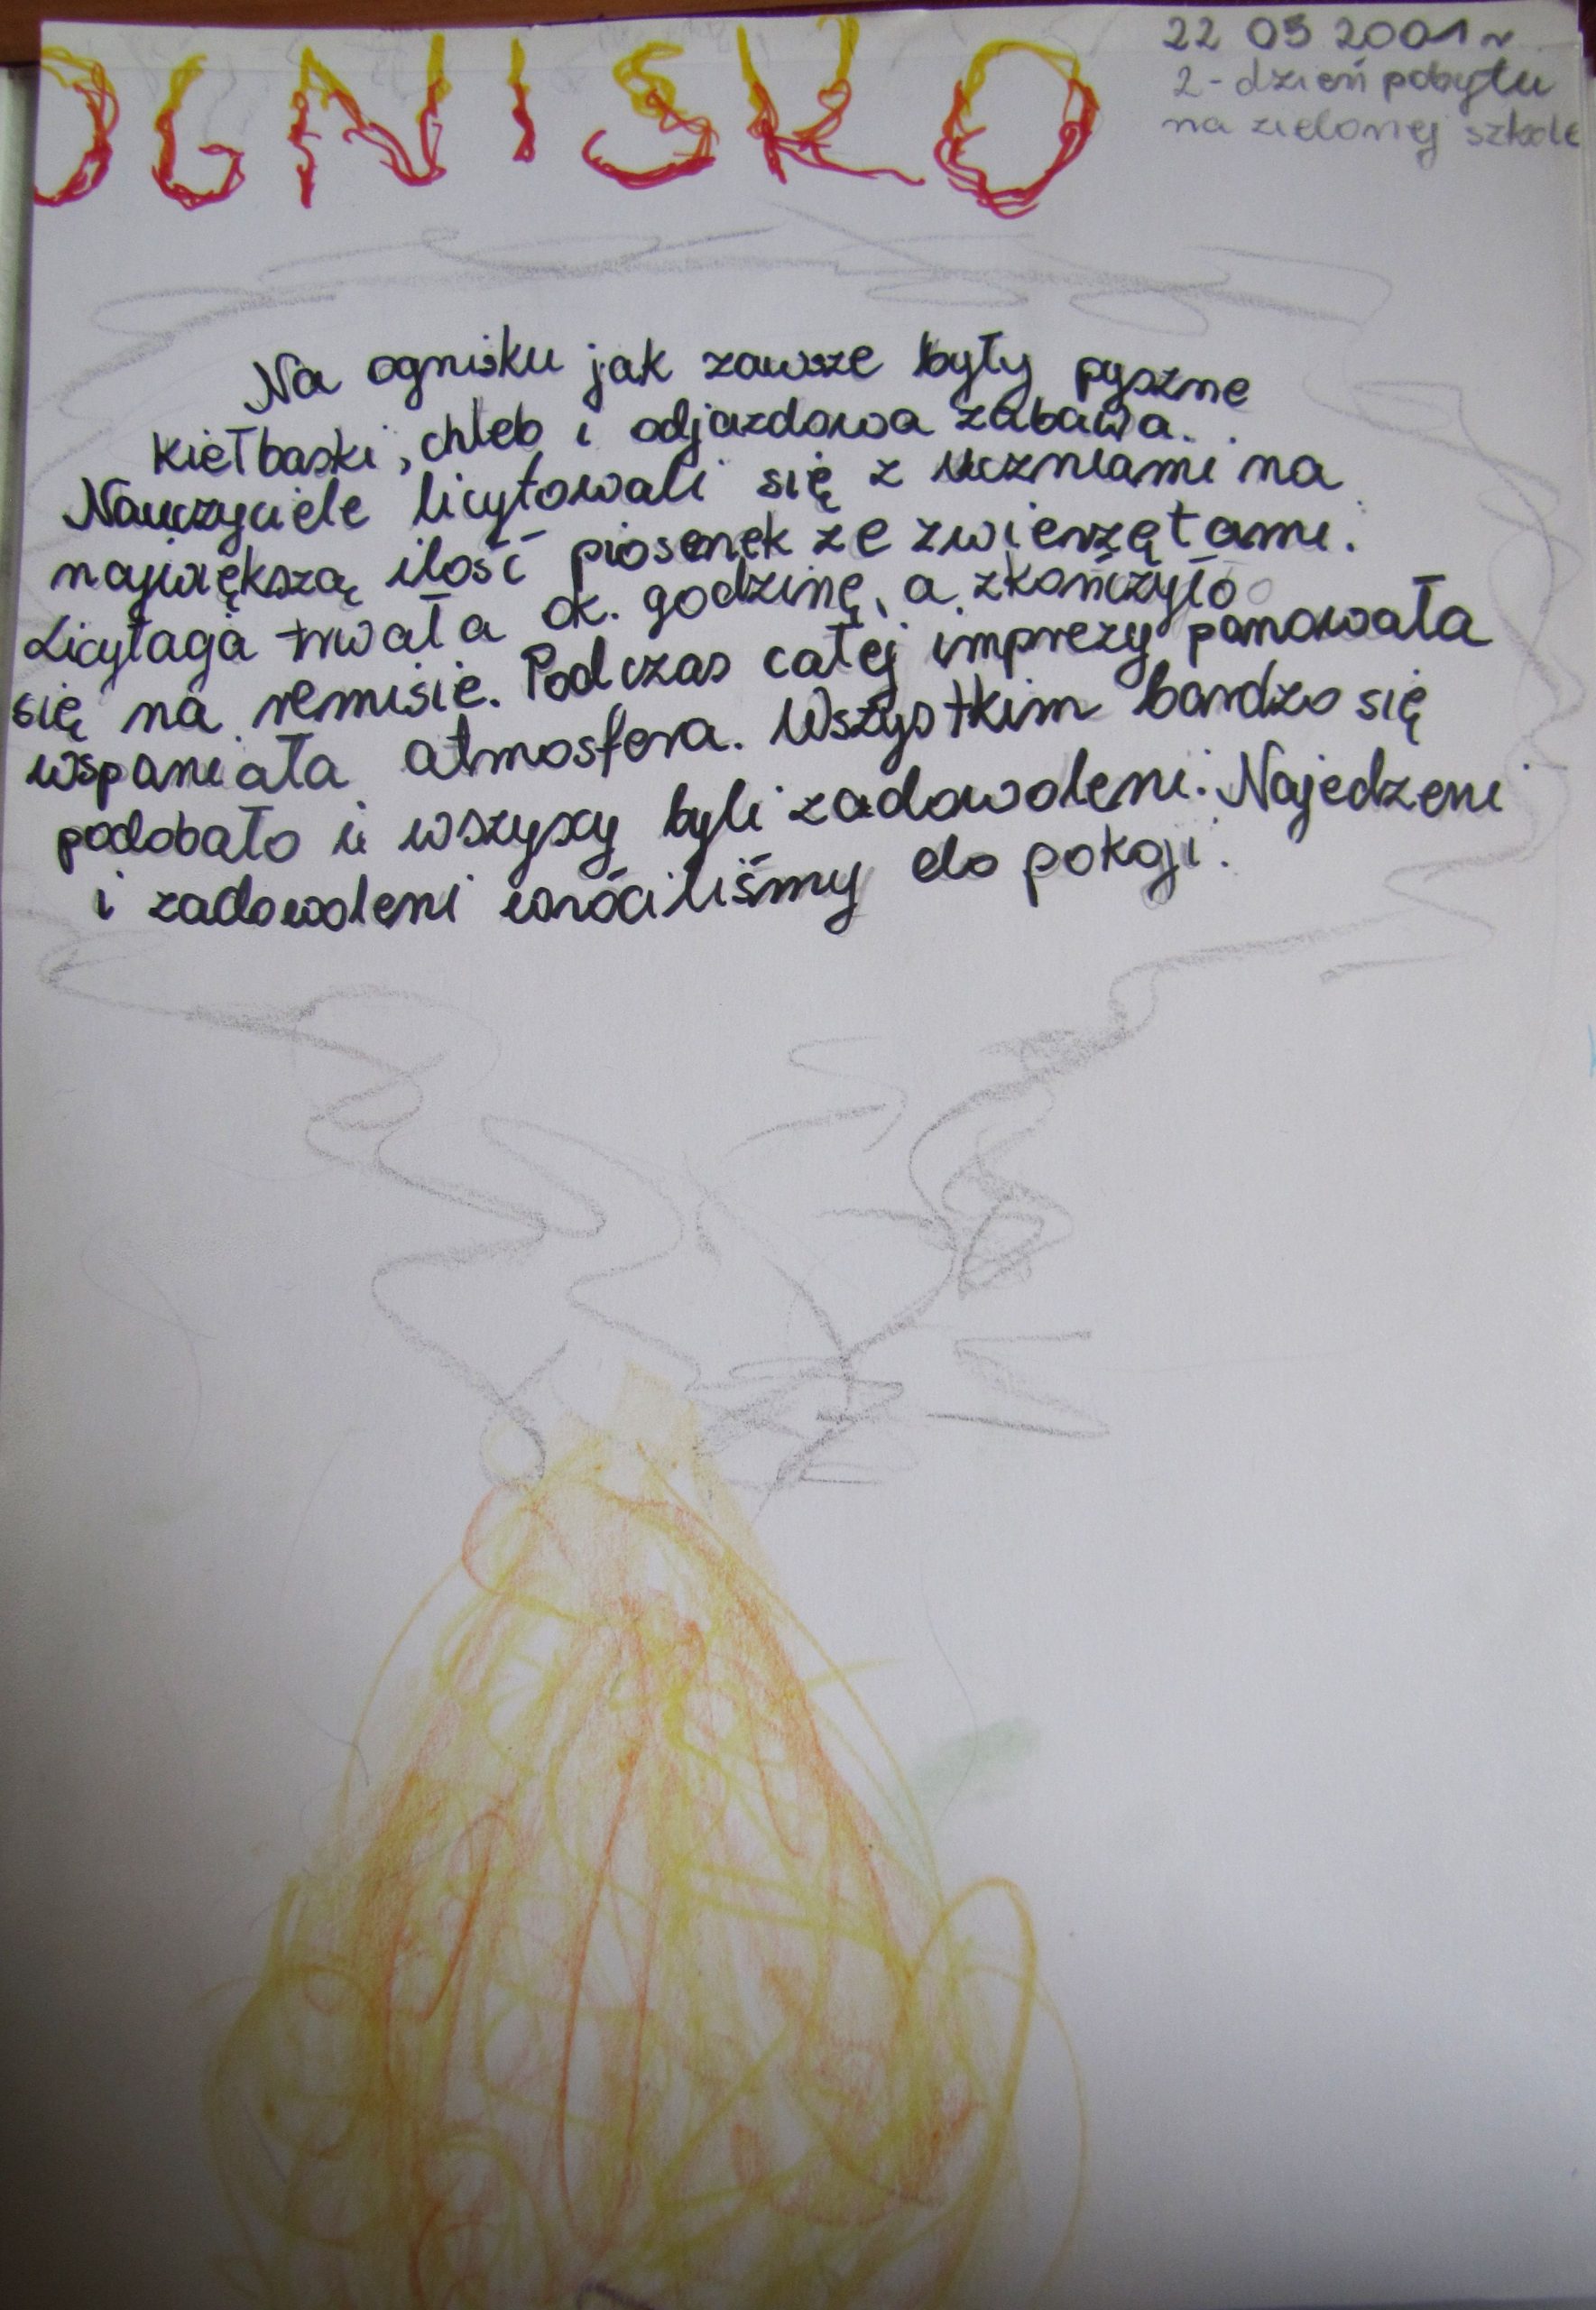 OGNISKO
22 05 2001 r
2-dzień pobytu
na zielonej szkole
Na ognisku jak zawsze były pyszne
kiełbaski, chleb i odjazdowa zabawa.
Nauczyciele licytowali się z uczniami na
największą ilość piosenek ze zwierzętami.
Licytacja trwała ok. godzinę, a zkończyło
się na remisie. Podczas całej imprezy panowała
wspaniała atmosfera. Wszystkim bardzo się
podobało i wszyscy byli zadowoleni. Najedzeni
i zadowoleni wróciliśmy do pokoji.